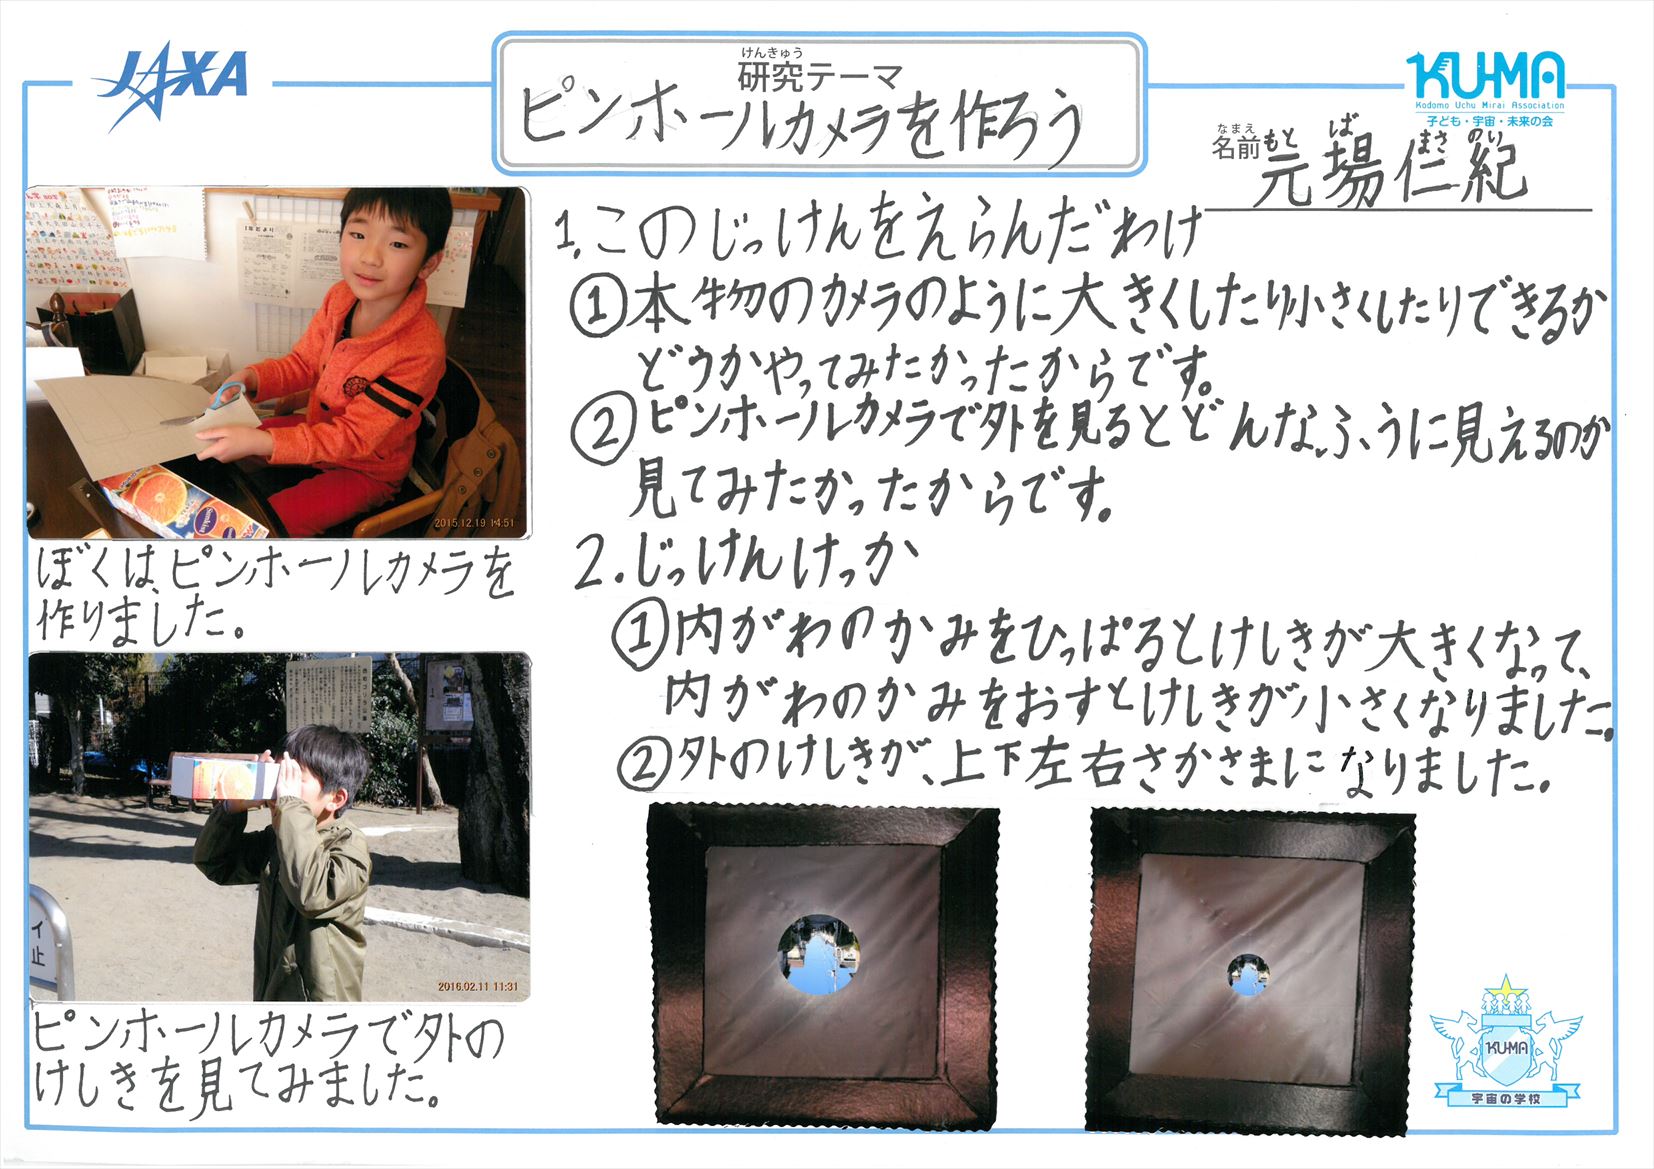 JAXA
けんきゅう
研究テーマ
ピンホールカメラを作ろう
KU-MA
Kodomo Uchu Mirai Association
子ども・宇宙・未来の会
なまえ
名前
もと ば まさ のい
元場仁紀
1.このじっけんをえらんだわけ
①本物のカメラのように大きくしたり小さくしたりできるか
どうかやってみたかったからです。
②ピンホールカメラで外を見るとどんなふうに見えるのか
見てみたかったからです。
2.じっけんけっか
①内がわのかみをひっぱるとけしきが大きくなって、
内がわのかみをおすとけしきが小さくなりました。
②外のけしきが、上下左右さかさまになりました。
2015.12.19 14:51
ぼくは、ピンホールカメラを
作りました。
イ
止
2016.02.11 11:31
ピンホールカメラで外の
けしきを見てみました。
KU-MA
宇宙の学校